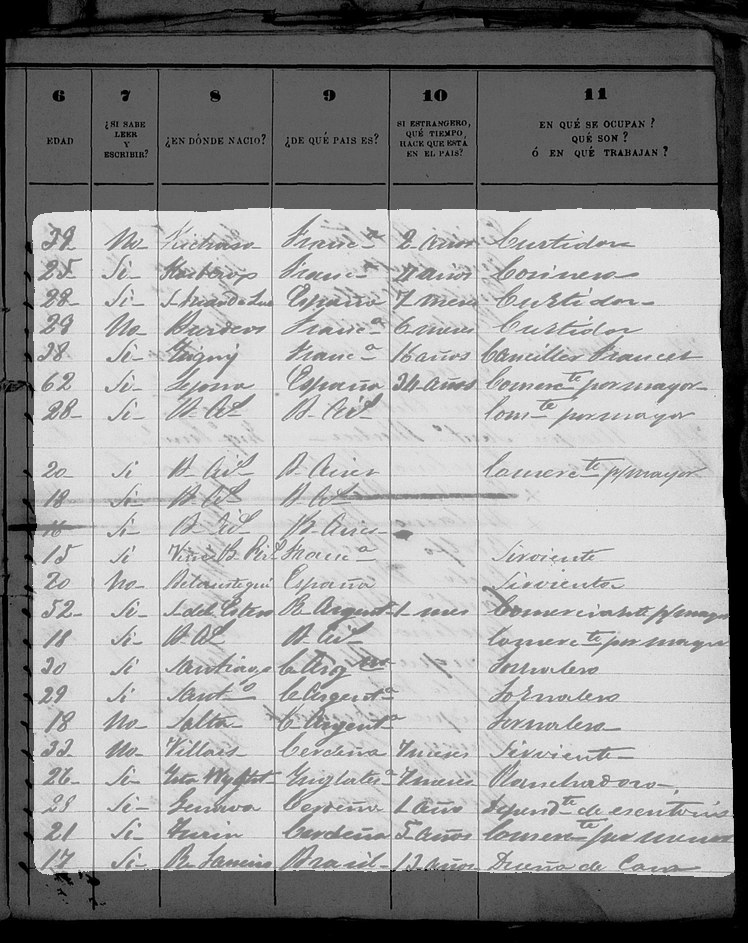 6 7 8 9 10 11
EDAD ¿SI SABE LEER Y ESCRIBIR? ¿EN DÓNDE NACIÓ? ¿DE QUÉ PAIS ES? SI ESTRANGERO, QUÉ TIEMPO HACE QUE ESTÁ EN EL PAIS? EN QUÉ SE OCUPAN? QUÉ SON? Ó EN QUÉ TRABAJAN?
No Franca 2 años Curtidor
25 Si Franca años Cosinero
28 Si S. Juan de Luz España 7 meses Curtidor
No Burdeos Franca 6 meses Curtidor
38 Si Franca 16 años Canciller Frances
62 Si España 34 años Comercte por mayor
28 Si B. Ais B. Ais Comte por mayor
20 Si B. Ais B. Aires Comercte p/mayor
18 Si B. As B. As
16 Si B. Ais B. Aires
15 Si B. Ais Franca Sirviente
20 No España Sirvienta
52 Si S. del Estero R. Argent 1 mes Comerciante p/mayor
18 Si B. As B. Ais Comercte por mayor
30 Si Santiago C. Argna Jornalero
29 Si Santo C. Argenta Jornalero
18 No Salta C. Argenta Jornalero
No Cerdeña 7 meses Sirviente
26 Si Inglatea 7 meses Planchadora
28 Si Genova Cerdeña 1 año Dependte de escritorio
21 Si Turin Cerdeña 5 años Comercte por menor
17 Si R. Janeiro Brasil 13 años Dueña de Casa